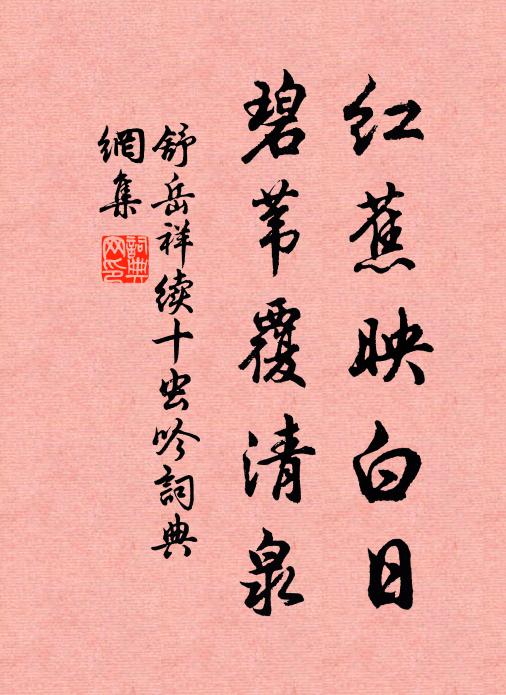 红蕉映白日
碧苇覆清泉
舒岳祥续十虫吟詞典
網集
詞典網印